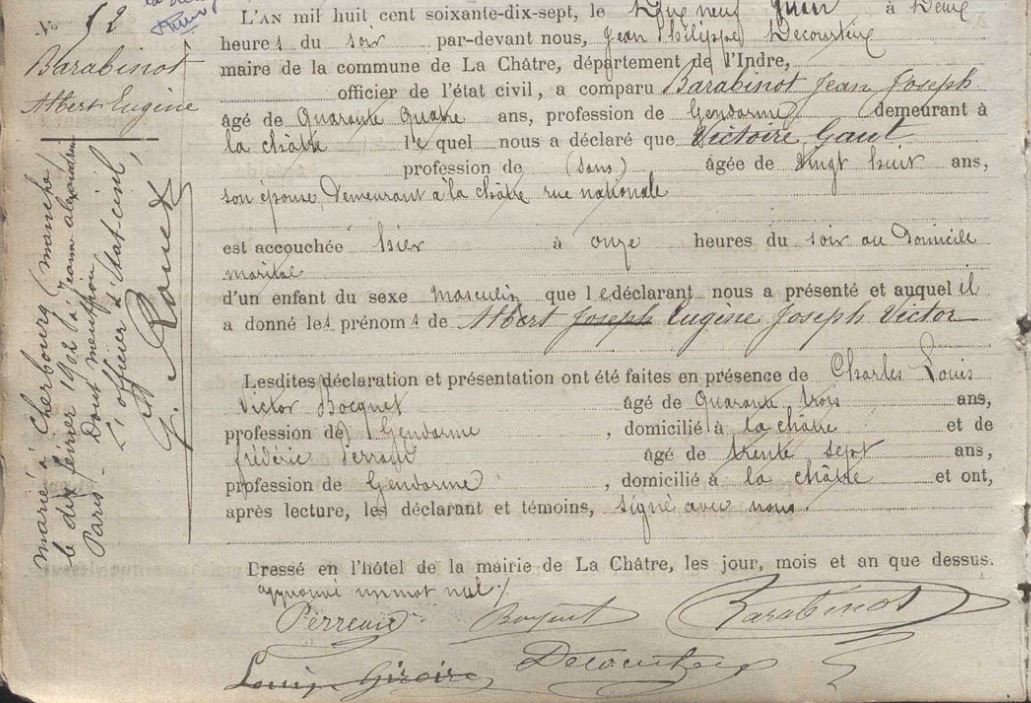 No 52
Barabinot
Albert Eugène
L'AN mil huit cent soixante-dix-sept, le Dix neuf Juin à Deux
heures du soir par-devant nous, Jean Philippe Decourteix
maire de la commune de La Châtre, département de l'Indre,
officier de l'état civil, a comparu Barabinot Jean Joseph
âgé de Quarante Quatre ans, profession de Gendarme demeurant à
la châtre lequel nous a déclaré que Victoire Gaut
profession de (sans) âgée de vingt huit ans,
son épouse, Demeurant à la châtre rue nationale
est accouchée hier à onze heures du soir au Domicile
marital
d'un enfant du sexe masculin que le déclarant nous a présenté et auquel il
a donné les prénoms de Albert Joseph Eugène Joseph Victor
Lesdites déclaration et présentation ont été faites en présence de Charles Louis
Victor Bocquet âgé de Quarante trois ans,
profession de Gendarme, domicilié à la châtre et de
frédéric Perraud âgé de trente sept ans,
profession de Gendarme, domicilié à la châtre et ont,
après lecture, les déclarant et témoins, signé avec nous.
Dressé en l'hôtel de la mairie de La Châtre, les jour, mois et an que dessus.
approuvé un mot nul ./.
Bocquet Barabinot
Louise Decourteix
marié à Cherbourg (manche)
le dix février 1902 à Jeanne alexandrine
Paris - Dont mention
L'officier d'état-civil,